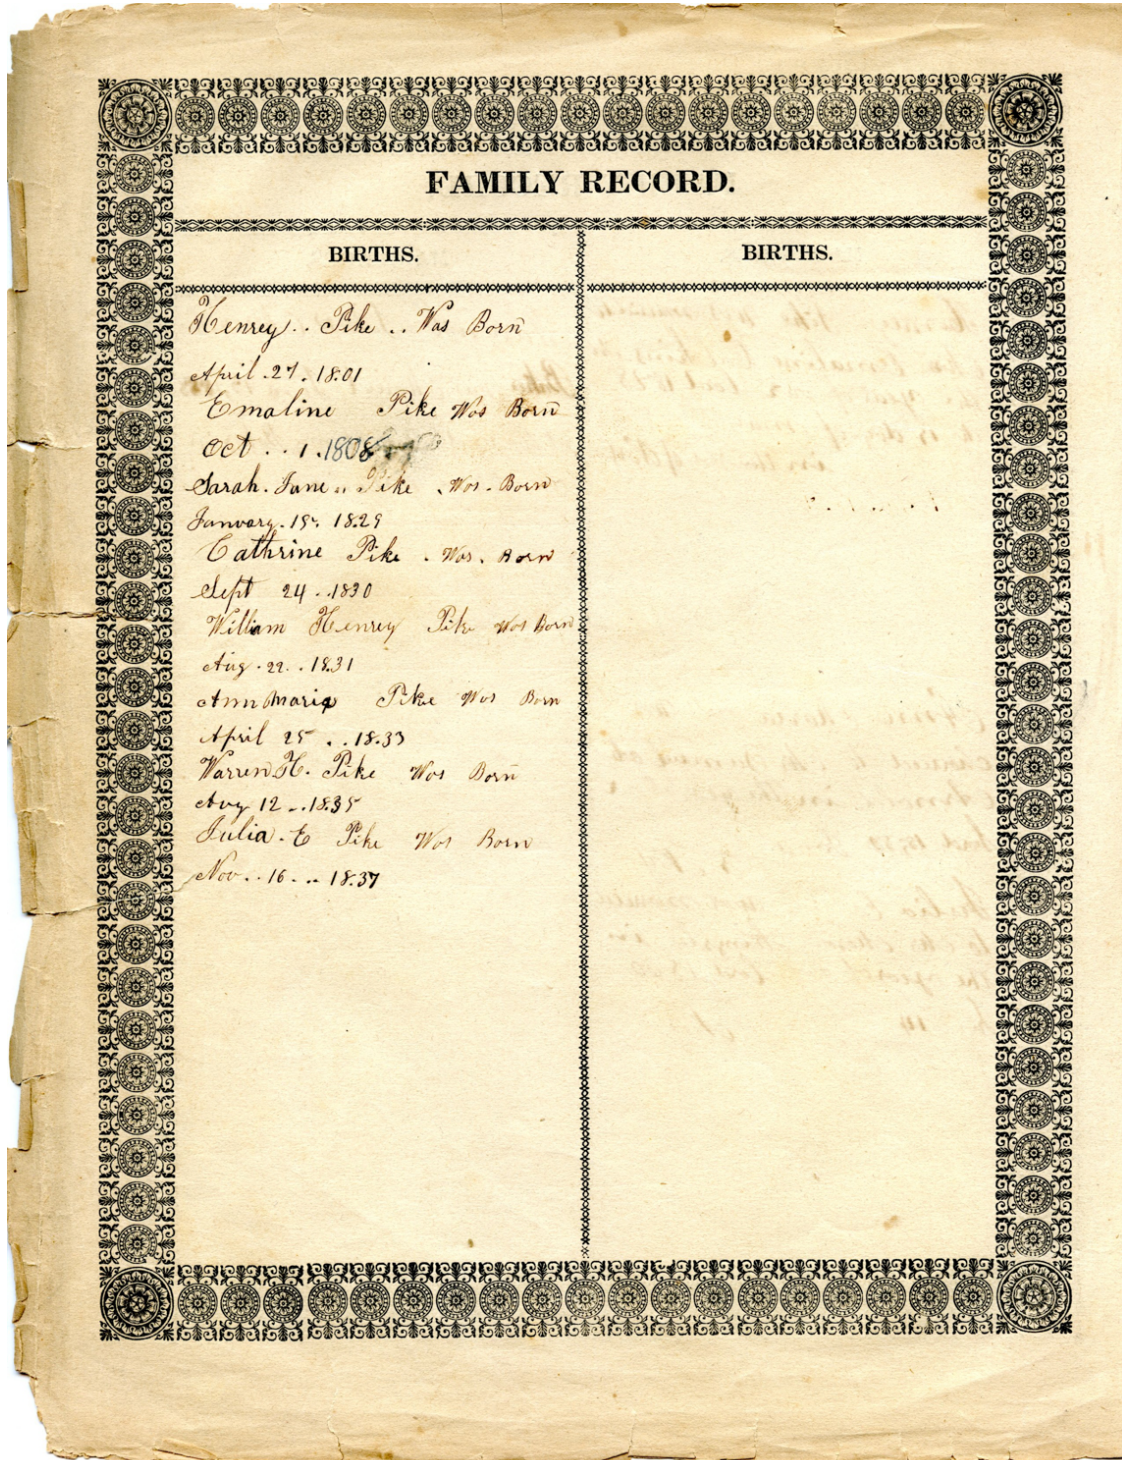 FAMILY RECORD.
BIRTHS.
Henrey .. Pike .. Was Born
April . 27 . 1801
Emaline Pike Was Born
Oct . . 1 . 1808
Sarah . Jane .. Pike . Was . Born
January . 15 . 1829
Cathrine Pike . Was . Born
Sept 24 . . 1830
William Henrey Pike Was Born
Aug . 22 . . 1831
Ann Maria Pike Was Born
April 25 . . 1833
Warren H . Pike Was Born
Aug 12 . . 1835
Julia . E Pike Was Born
Nov . . 16 . . . 1837
BIRTHS.